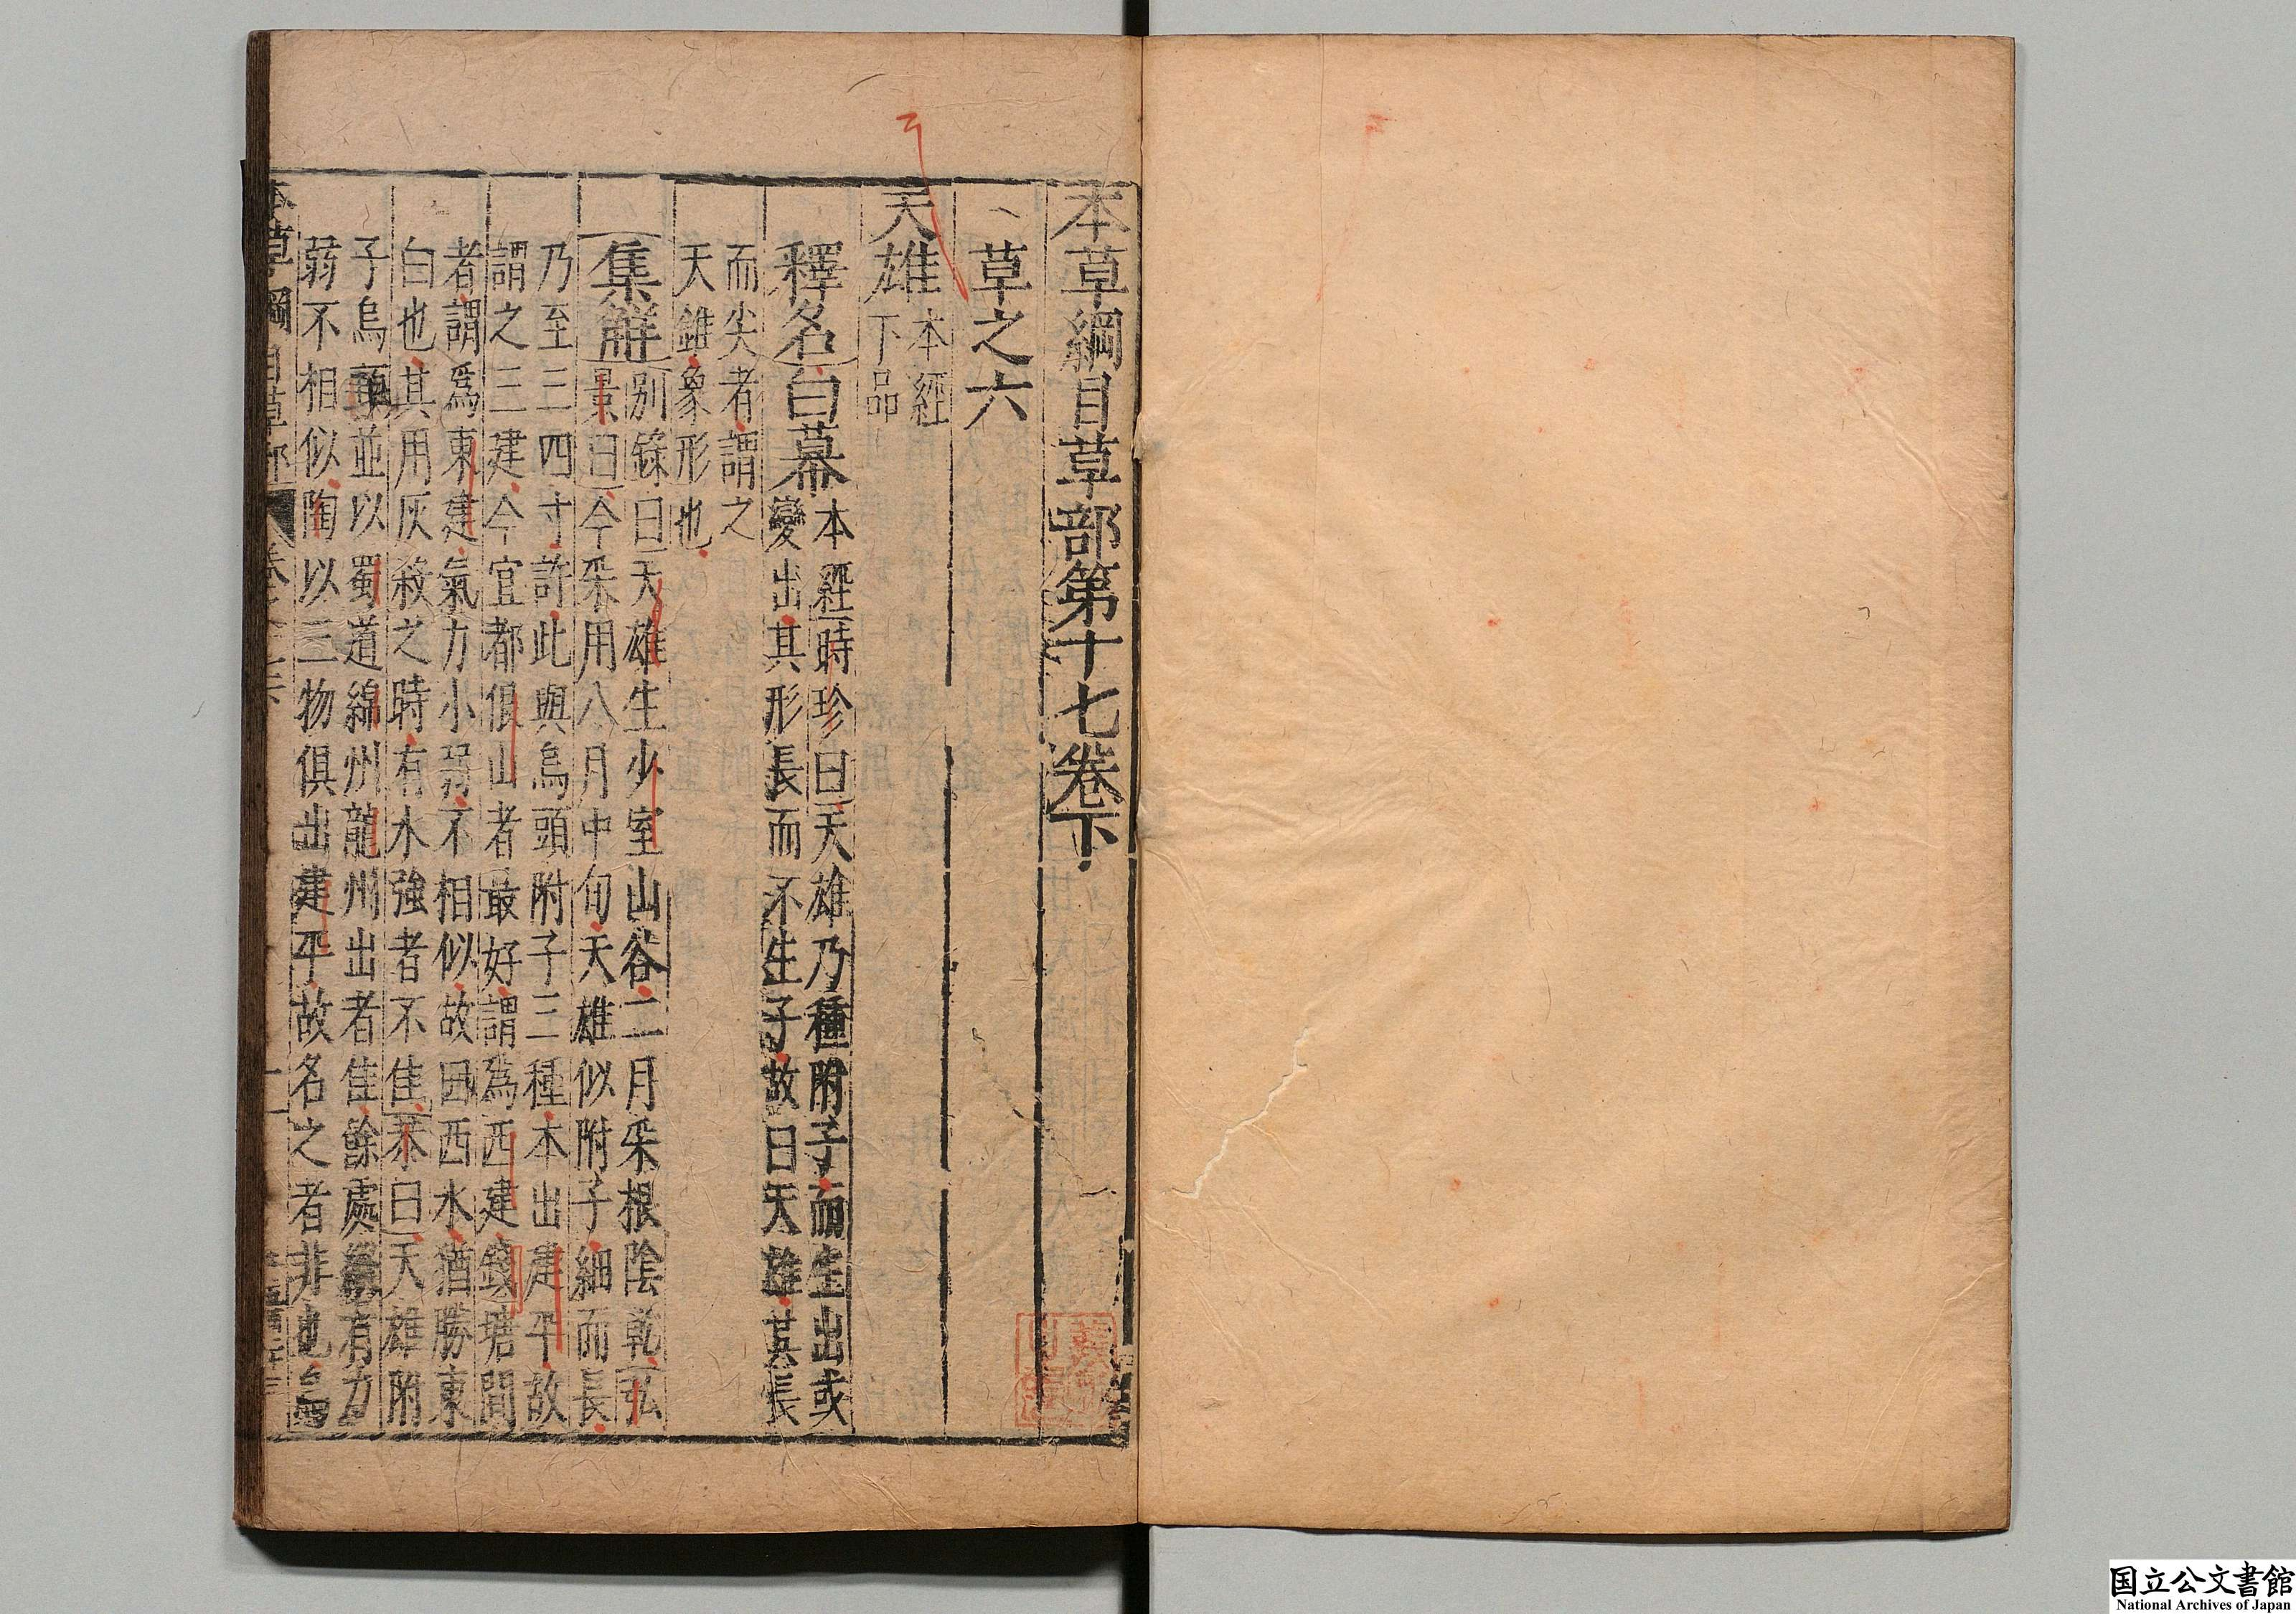 本草綱目草部第十七卷下
草之六
天雄本經
下品
釋名白幕本經時珍曰天雄乃種附子而生出或
變出其形長而不生子故曰天雄其長
而尖者謂之
天錐象形也
集解別錄曰天雄生少室山谷二月采根陰乾弘
景曰今采用八月中旬天雄似附子細而長
乃至三四寸許此與烏頭附子三種本出建平故
謂之三建今宜都佷山者最好謂為西建錢塘間
者謂爲東建氣力小弱不相似故曰西水猶勝東
白也其用灰殺之時有水強者不佳恭曰天雄附
子烏頭並以蜀道綿州龍州出者佳餘處縱有力
弱不相似陶以三物俱出建平故名之者非也烏
国立公文書館
National Archives of Japan